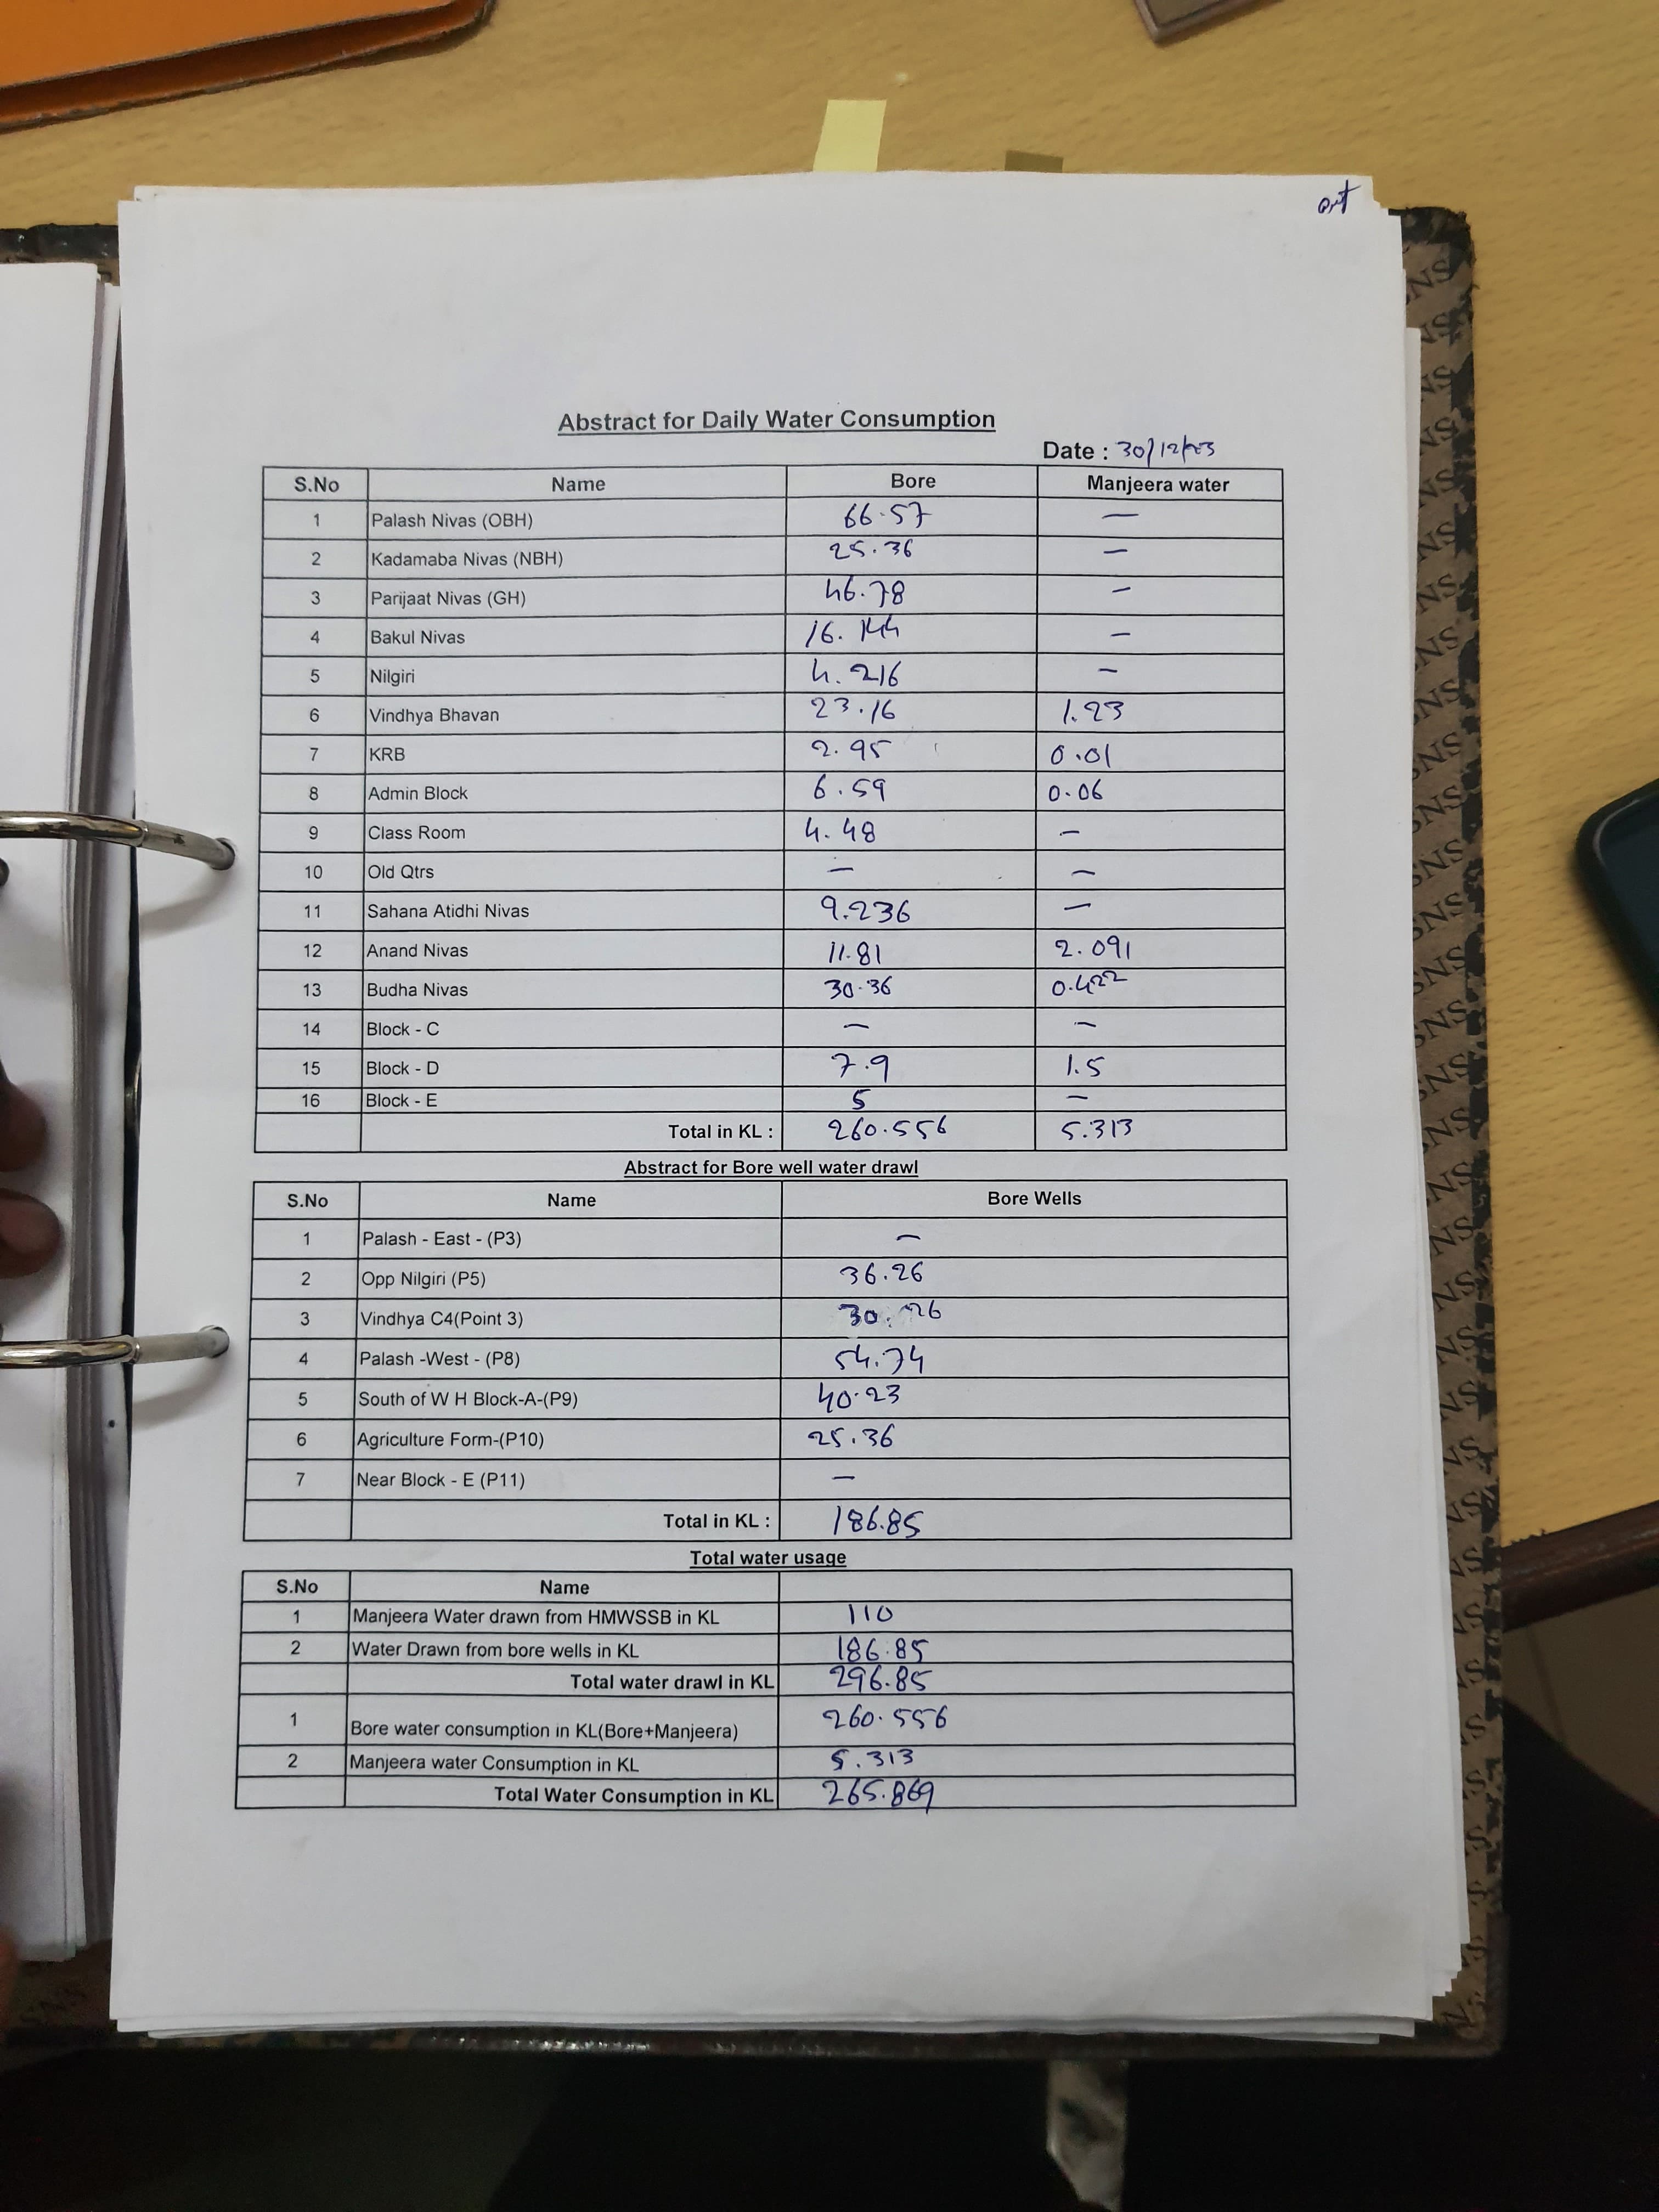 Abstract for Daily Water Consumption
Date : 30/12/23
S.No Name Bore Manjeera water
1 Palash Nivas (OBH) 66.57 —
2 Kadamaba Nivas (NBH) 25.36 —
3 Parijaat Nivas (GH) 46.78 —
4 Bakul Nivas 16.144 —
5 Nilgiri 4.216 —
6 Vindhya Bhavan 23.16 1.23
7 KRB 2.95 0.01
8 Admin Block 6.59 0.06
9 Class Room 4.48 —
10 Old Qtrs — —
11 Sahana Atidhi Nivas 9.236 —
12 Anand Nivas 11.81 2.091
13 Budha Nivas 30.36 0.422
14 Block - C — —
15 Block - D 7.9 1.5
16 Block - E 5 —
Total in KL : 260.556 5.313
Abstract for Bore well water drawl
S.No Name Bore Wells
1 Palash - East - (P3) —
2 Opp Nilgiri (P5) 36.26
3 Vindhya C4(Point 3) 30.26
4 Palash -West - (P8) 54.74
5 South of W H Block-A-(P9) 40.23
6 Agriculture Form-(P10) 25.36
7 Near Block - E (P11) —
Total in KL : 186.85
Total water usage
S.No Name
1 Manjeera Water drawn from HMWSSB in KL 110
2 Water Drawn from bore wells in KL 186.85
Total water drawl in KL 296.85
1 Bore water consumption in KL(Bore+Manjeera) 260.556
2 Manjeera water Consumption in KL 5.313
Total Water Consumption in KL 265.869